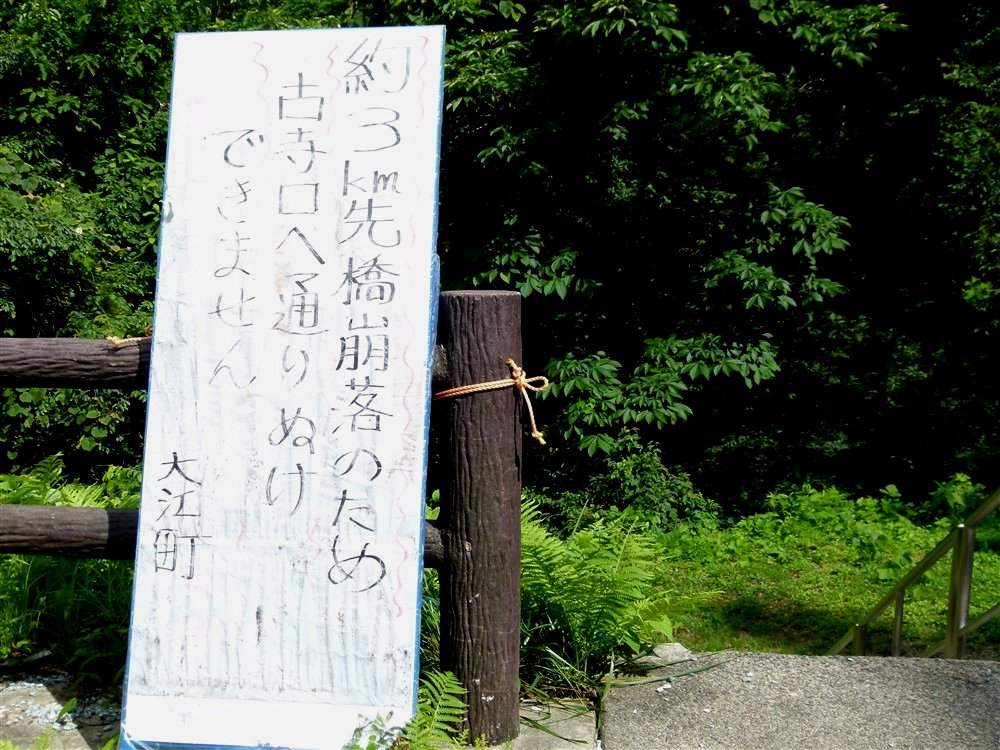 約3km先橋崩落のため
古寺口へ通りぬけ
できません
大江町